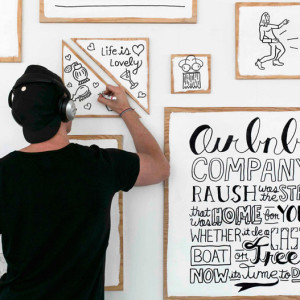 Life is
Lovely
airbnb
COMPANY
RAUSH was the
that was HOME for YOU
WHETHER it de a
BOAT or Tree
NOW its Time to